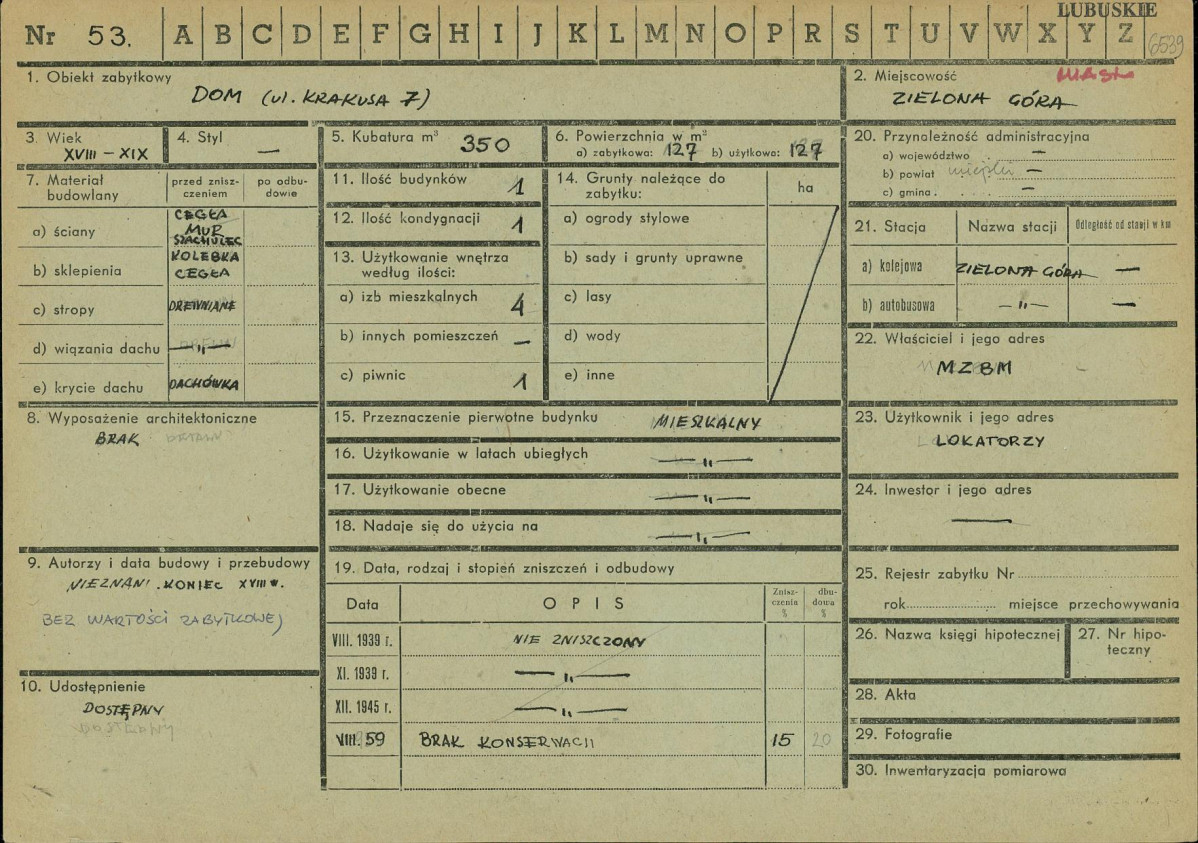 LUBUSKIE
Nr 53. A B C D E F G H I J K L M N O P R S T U V W X Y Z 6539
1. Obiekt zabytkowy
DOM (ul. KRAKUSA 7)
2. Miejscowość
ZIELONA GÓRA
3. Wiek
XVIII – XIX
4. Styl
—
5. Kubatura m³ 350
6. Powierzchnia w m²
a) zabytkowa: 127 b) użytkowa: 127
7. Materiał budowlany
przed zniszczeniem
po odbudowie
a) ściany
CEGŁA
MUR
SZACHULEC
b) sklepienia
KOLEBKA
CEGŁA
c) stropy DREWNIANE
d) wiązania dachu —„—
e) krycie dachu DACHÓWKA
8. Wyposażenie architektoniczne
BRAK
9. Autorzy i data budowy i przebudowy
NIEZNANI. KONIEC XVIII w.
BEZ WARTOŚCI ZABYTKOWEJ
10. Udostępnienie
DOSTĘPNY
11. Ilość budynków 1
12. Ilość kondygnacji 1
13. Użytkowanie wnętrza
według ilości:
a) izb mieszkalnych 4
b) innych pomieszczeń —
c) piwnic 1
14. Grunty należące do
zabytku:
ha
a) ogrody stylowe
b) sady i grunty uprawne
c) lasy
d) wody
e) inne
15. Przeznaczenie pierwotne budynku MIESZKALNY
16. Użytkowanie w latach ubiegłych —„—
17. Użytkowanie obecne —„—
18. Nadaje się do użycia na —„—
19. Data, rodzaj i stopień zniszczeń i odbudowy
Data
OPIS
Zniszczenia %
dbudowa %
VIII. 1939 r. NIE ZNISZCZONY
XI. 1939 r. —„—
XII. 1945 r. —„—
VIII. 59 BRAK KONSERWACJI 15 20
20. Przynależność administracyjna
a) województwo —
b) powiat miejski —
c) gmina . —
21. Stacja
Nazwa stacji
Odległość od stacji w km
a) kolejowa ZIELONA GÓRA —
b) autobusowa —„— —
22. Właściciel i jego adres
MZBM
23. Użytkownik i jego adres
LOKATORZY
24. Inwestor i jego adres
—
25. Rejestr zabytku Nr
rok miejsce przechowywania
26. Nazwa księgi hipotecznej
27. Nr hipoteczny
28. Akta
29. Fotografie
30. Inwentaryzacja pomiarowa